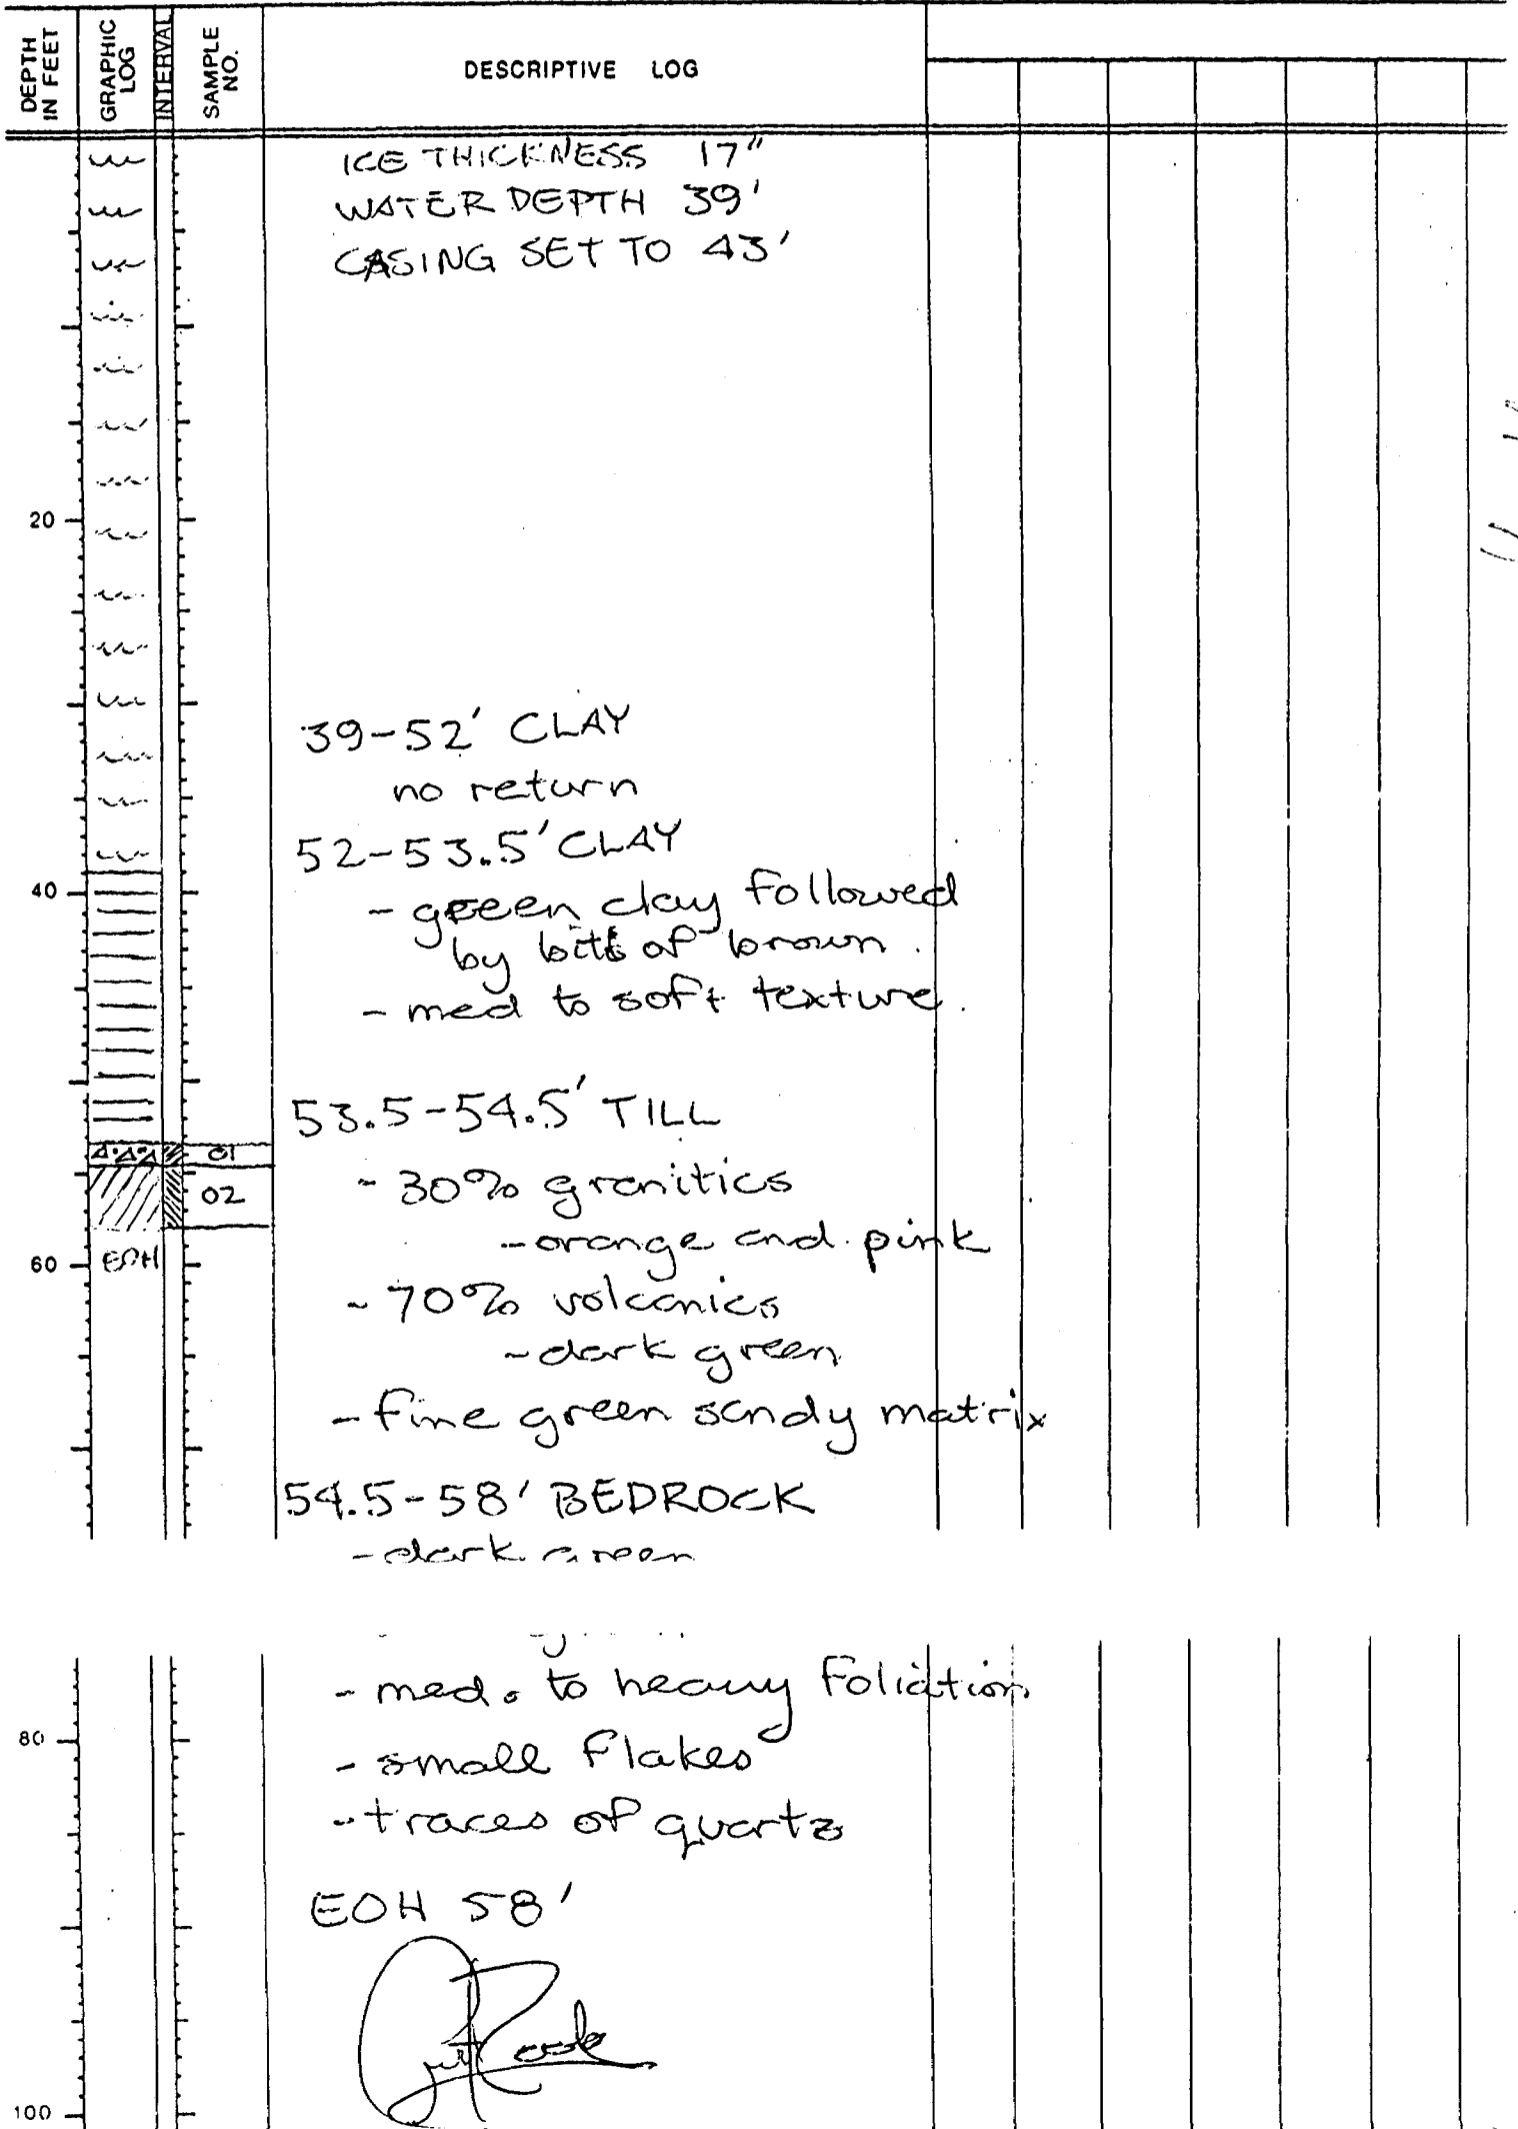 DEPTH IN FEET
GRAPHIC LOG
INTERVAL
SAMPLE NO.
DESCRIPTIVE LOG
ICE THICKNESS 17"
WATER DEPTH 39'
CASING SET TO 43'
20
39-52' CLAY
no return
52-53.5' CLAY
40
- green clay followed
by bits of brown.
- med to soft texture.
53.5-54.5' TILL
01
- 30% granitics
02
- orange and pink
60
EOH
- 70% volcanics
- dark green
- fine green sandy matrix
54.5-58' BEDROCK
- dark green
- med. to heavy foliation
80
- small flakes
- traces of quartz
EOH 58'
100